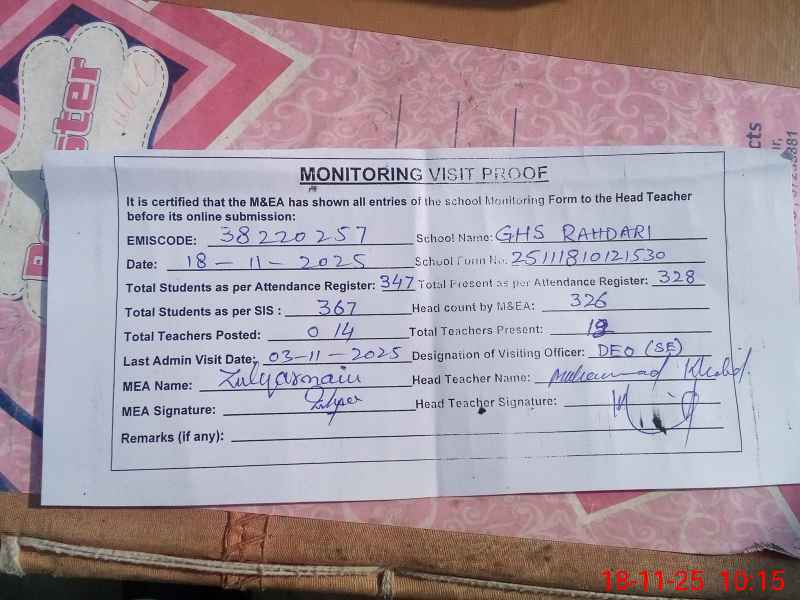 MONITORING VISIT PROOF
It is certified that the M&EA has shown all entries of the school Monitoring Form to the Head Teacher
before its online submission:
EMISCODE: 38220257 School Name: GHS RAHDARI
Date: 18-11-2025 School Form No. 25111810121530
Total Students as per Attendance Register: 347 Total Present as per Attendance Register: 328
Total Students as per SIS : 367 Head count by M&EA: 326
Total Teachers Posted: 014 Total Teachers Present:
Last Admin Visit Date: 03-11-2025 Designation of Visiting Officer: DEO (SE)
MEA Name: Zulqarnain Head Teacher Name: Muhammad Khalid
MEA Signature: Head Teacher Signature:
Remarks (if any):
18-11-25 10:15